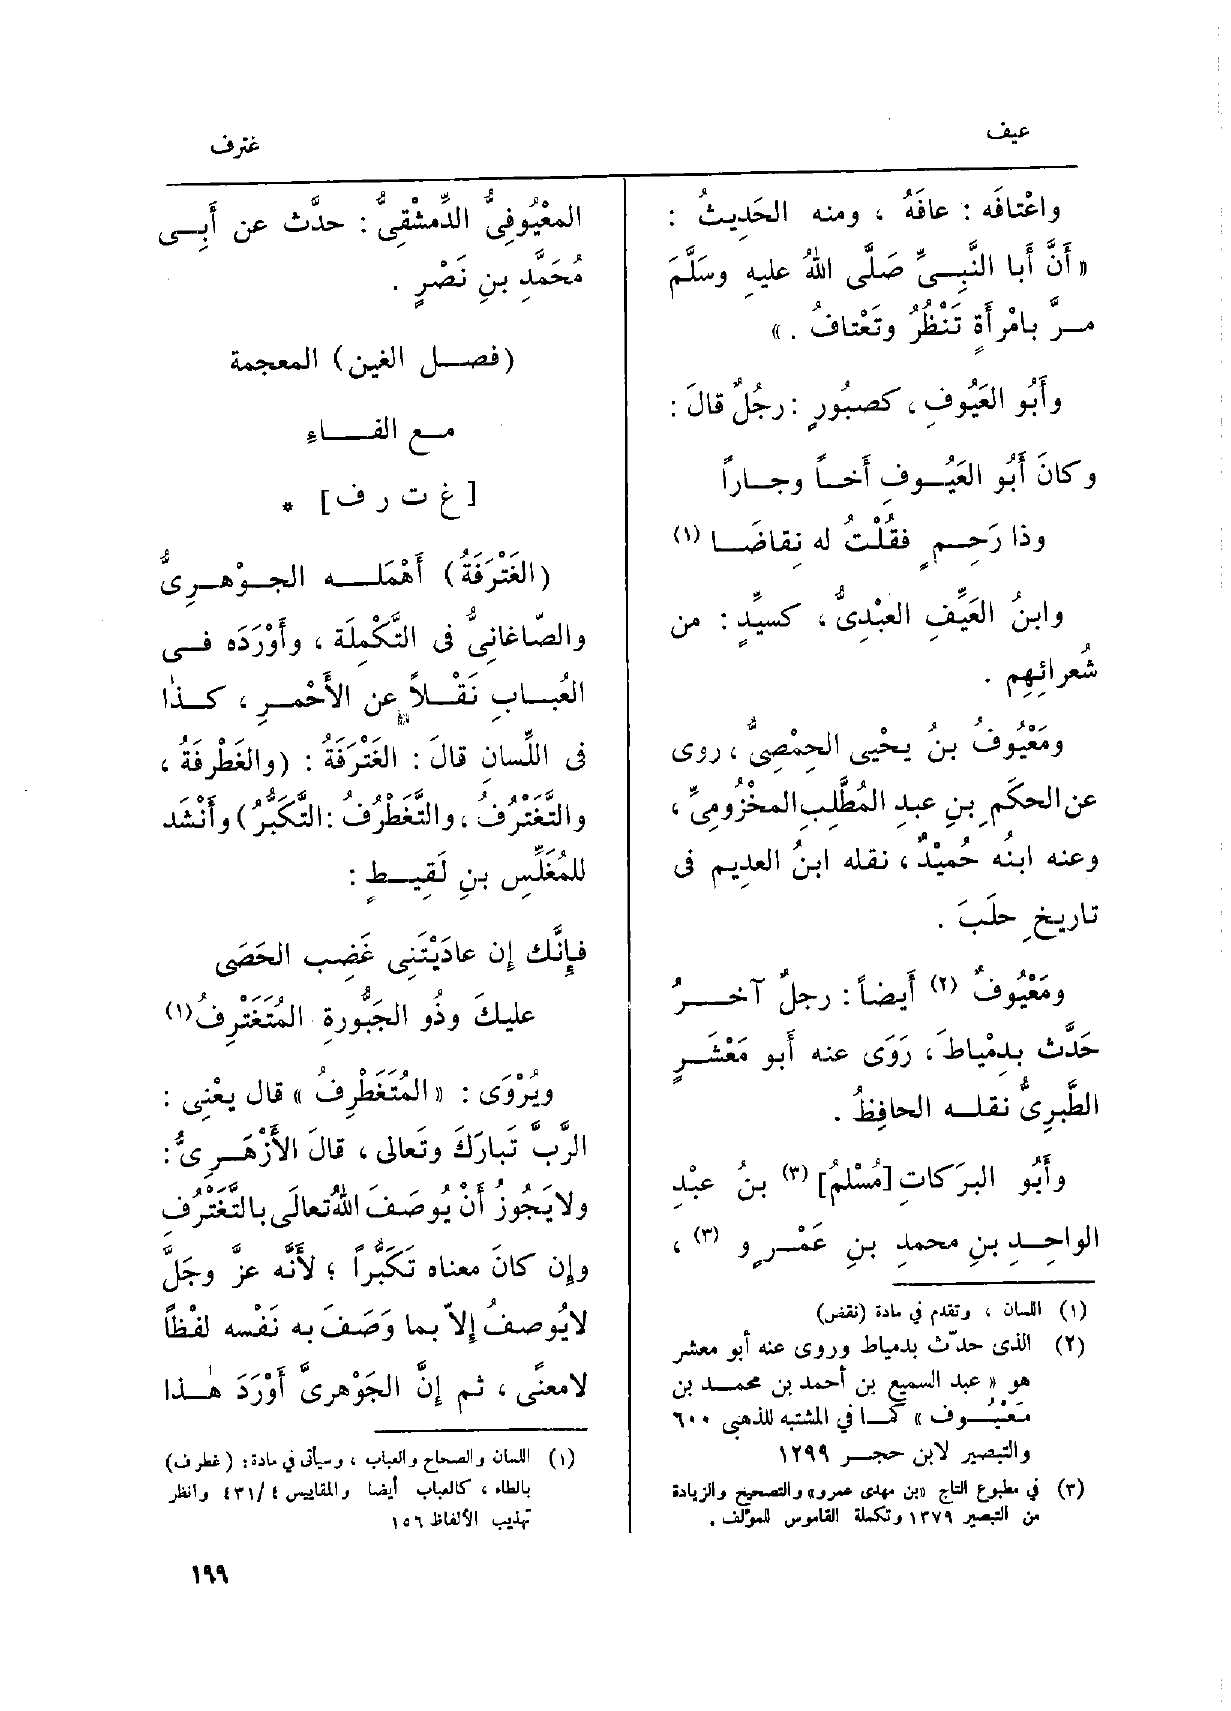 عيف
غترف
واعْتافَه : عافَهُ ، ومنه الحَدِيثُ :
« أَنَّ أَبا النَّبِىِّ صَلَّى اللهُ عليهِ وسَلَّمَ
مرَّ بامْرأَةٍ تَنْظُرُ وتَعْتافُ . »
وأَبُو العَيُوفِ ، كصبُورٍ : رجُلٌ قالَ :
وكانَ أَبُو العَيُوفِ أَخاً وجاراً
وذا رَحِمٍ فقُلْتُ له نِقاضَا (١)
وابنُ العَيِّفِ العبْدِىُّ ، كسيِّدٍ : من
شُعرائِهِم .
ومَعْيُوفُ بنُ يحْيى الحِمْصِىُّ ، روى
عن الحكَمِ بنِ عبدِ المُطَّلِبِ المخْزُومِىِّ ،
وعنه ابنُه حُميْدٌ ، نقله ابنُ العديم فى
تاريخِ حلَبَ .
ومَعْيُوفٌ (٢) أَيضاً : رجلٌ آخرُ
حَدَّث بدِمْياطَ ، رَوَى عنه أَبو مَعْشَرٍ
الطَّبرِىُّ نقله الحافِظُ .
وأَبُو البَركاتِ [مُسْلمُ] (٣) بنُ عبْدِ
الواحِدِ بنِ محمدِ بنِ عَمْرٍو (٣) ،
(١) اللسان ، وتقدم في مادة (نقض)
(٢) الذى حدّث بدمياط وروى عنه أبو معشر
هو « عبد السميع بن أحمد بن محمد بن
مَعْيُوف » كما في المشتبه للذهبى ٦٠٠
والتبصير لابن حجر ١٢٩٩
(٣) في مطبوع التاج «بن مهدى عمرو» والتصحيح والزيادة
من التبصير ١٣٧٩ وتكملة القاموس للمؤلف .
المعْيُوفِىُّ الدِّمشْقِىُّ : حدَّث عن أَبِى
مُحَمَّدِ بنِ نَصْرٍ .
(فصل الغين) المعجمة
مع الفاء
[ غ ت ر ف ] *
(الغَتْرَفَةُ) أَهْمَله الجوْهرِىُّ
والصّاغانِىُّ فى التَّكْمِلَة ، وأَوْرَدَه فى
العُبابِ نَقْلاً عن الأَحْمرِ ، كذٰا
فى اللِّسان قالَ : الغَتْرَفَةُ : (والغَطْرفَةُ ،
والتَّغَتْرُفُ ، والتَّغَطْرُفُ : التَّكَبُّرُ) وأَنْشَد
للمُغَلِّس بنِ لَقِيطٍ :
فإِنَّك إِن عادَيْتَنِى غَضِب الحَصَى
عليكَ وذُو الجَبُّورةِ المُتَغَتْرِفُ (١)
ويُرْوَى : « المُتَغَطْرِفُ » قال يعْنِى :
الرَّبَّ تَبارَكَ وتَعالى ، قالَ الأَزْهَرِىُّ :
ولايَجُوزُ أَنْ يُوصَفَ اللهُ تعالَى بالتَّغَتْرُفِ
وإِن كانَ معناه تَكَبُّراً ؛ لأَنَّه عزَّ وجَلَّ
لايُوصفُ إِلاّ بما وَصَفَ به نَفْسه لفْظاً
لامعنًى ، ثم إِنَّ الجَوْهرىَّ أَوْرَدَ هٰذا
(١) اللسان والصحاح والعباب ، وسيأتى في مادة : (غطرف)
بالطاء ، كالعباب أيضا والمقاييس ٤ /٤٣١ وانظر
تهذيب الألفاظ ١٥٦
١٩٩